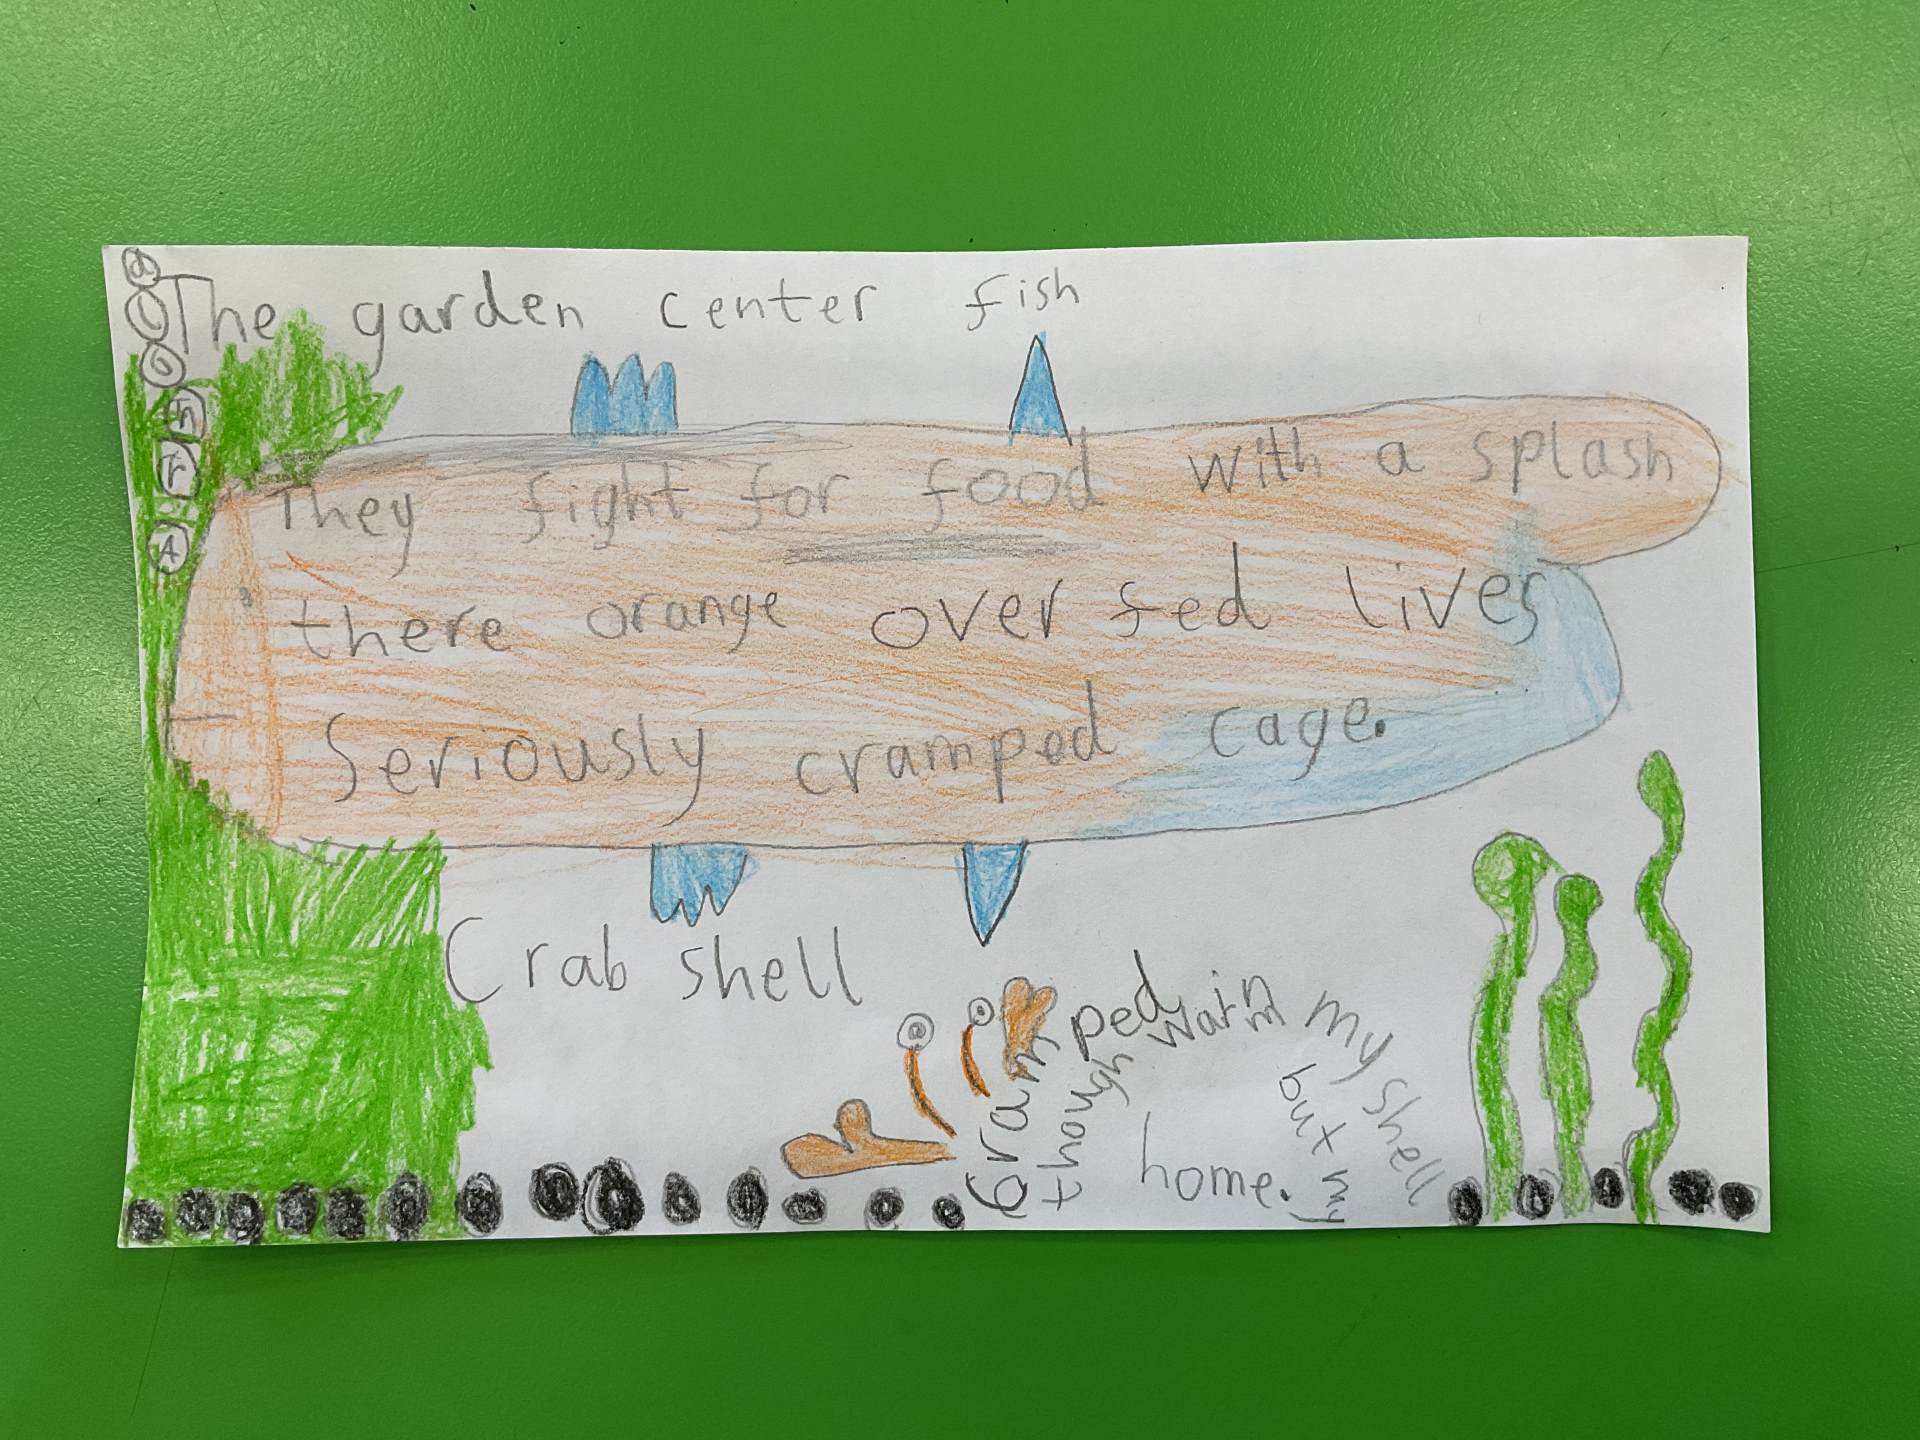 The garden center fish
Arnold
They fight for food with a splash
there orange over fed lives
Seriously cramped cage.
Crab shell
Cramped in my shell
though warm but my
home.